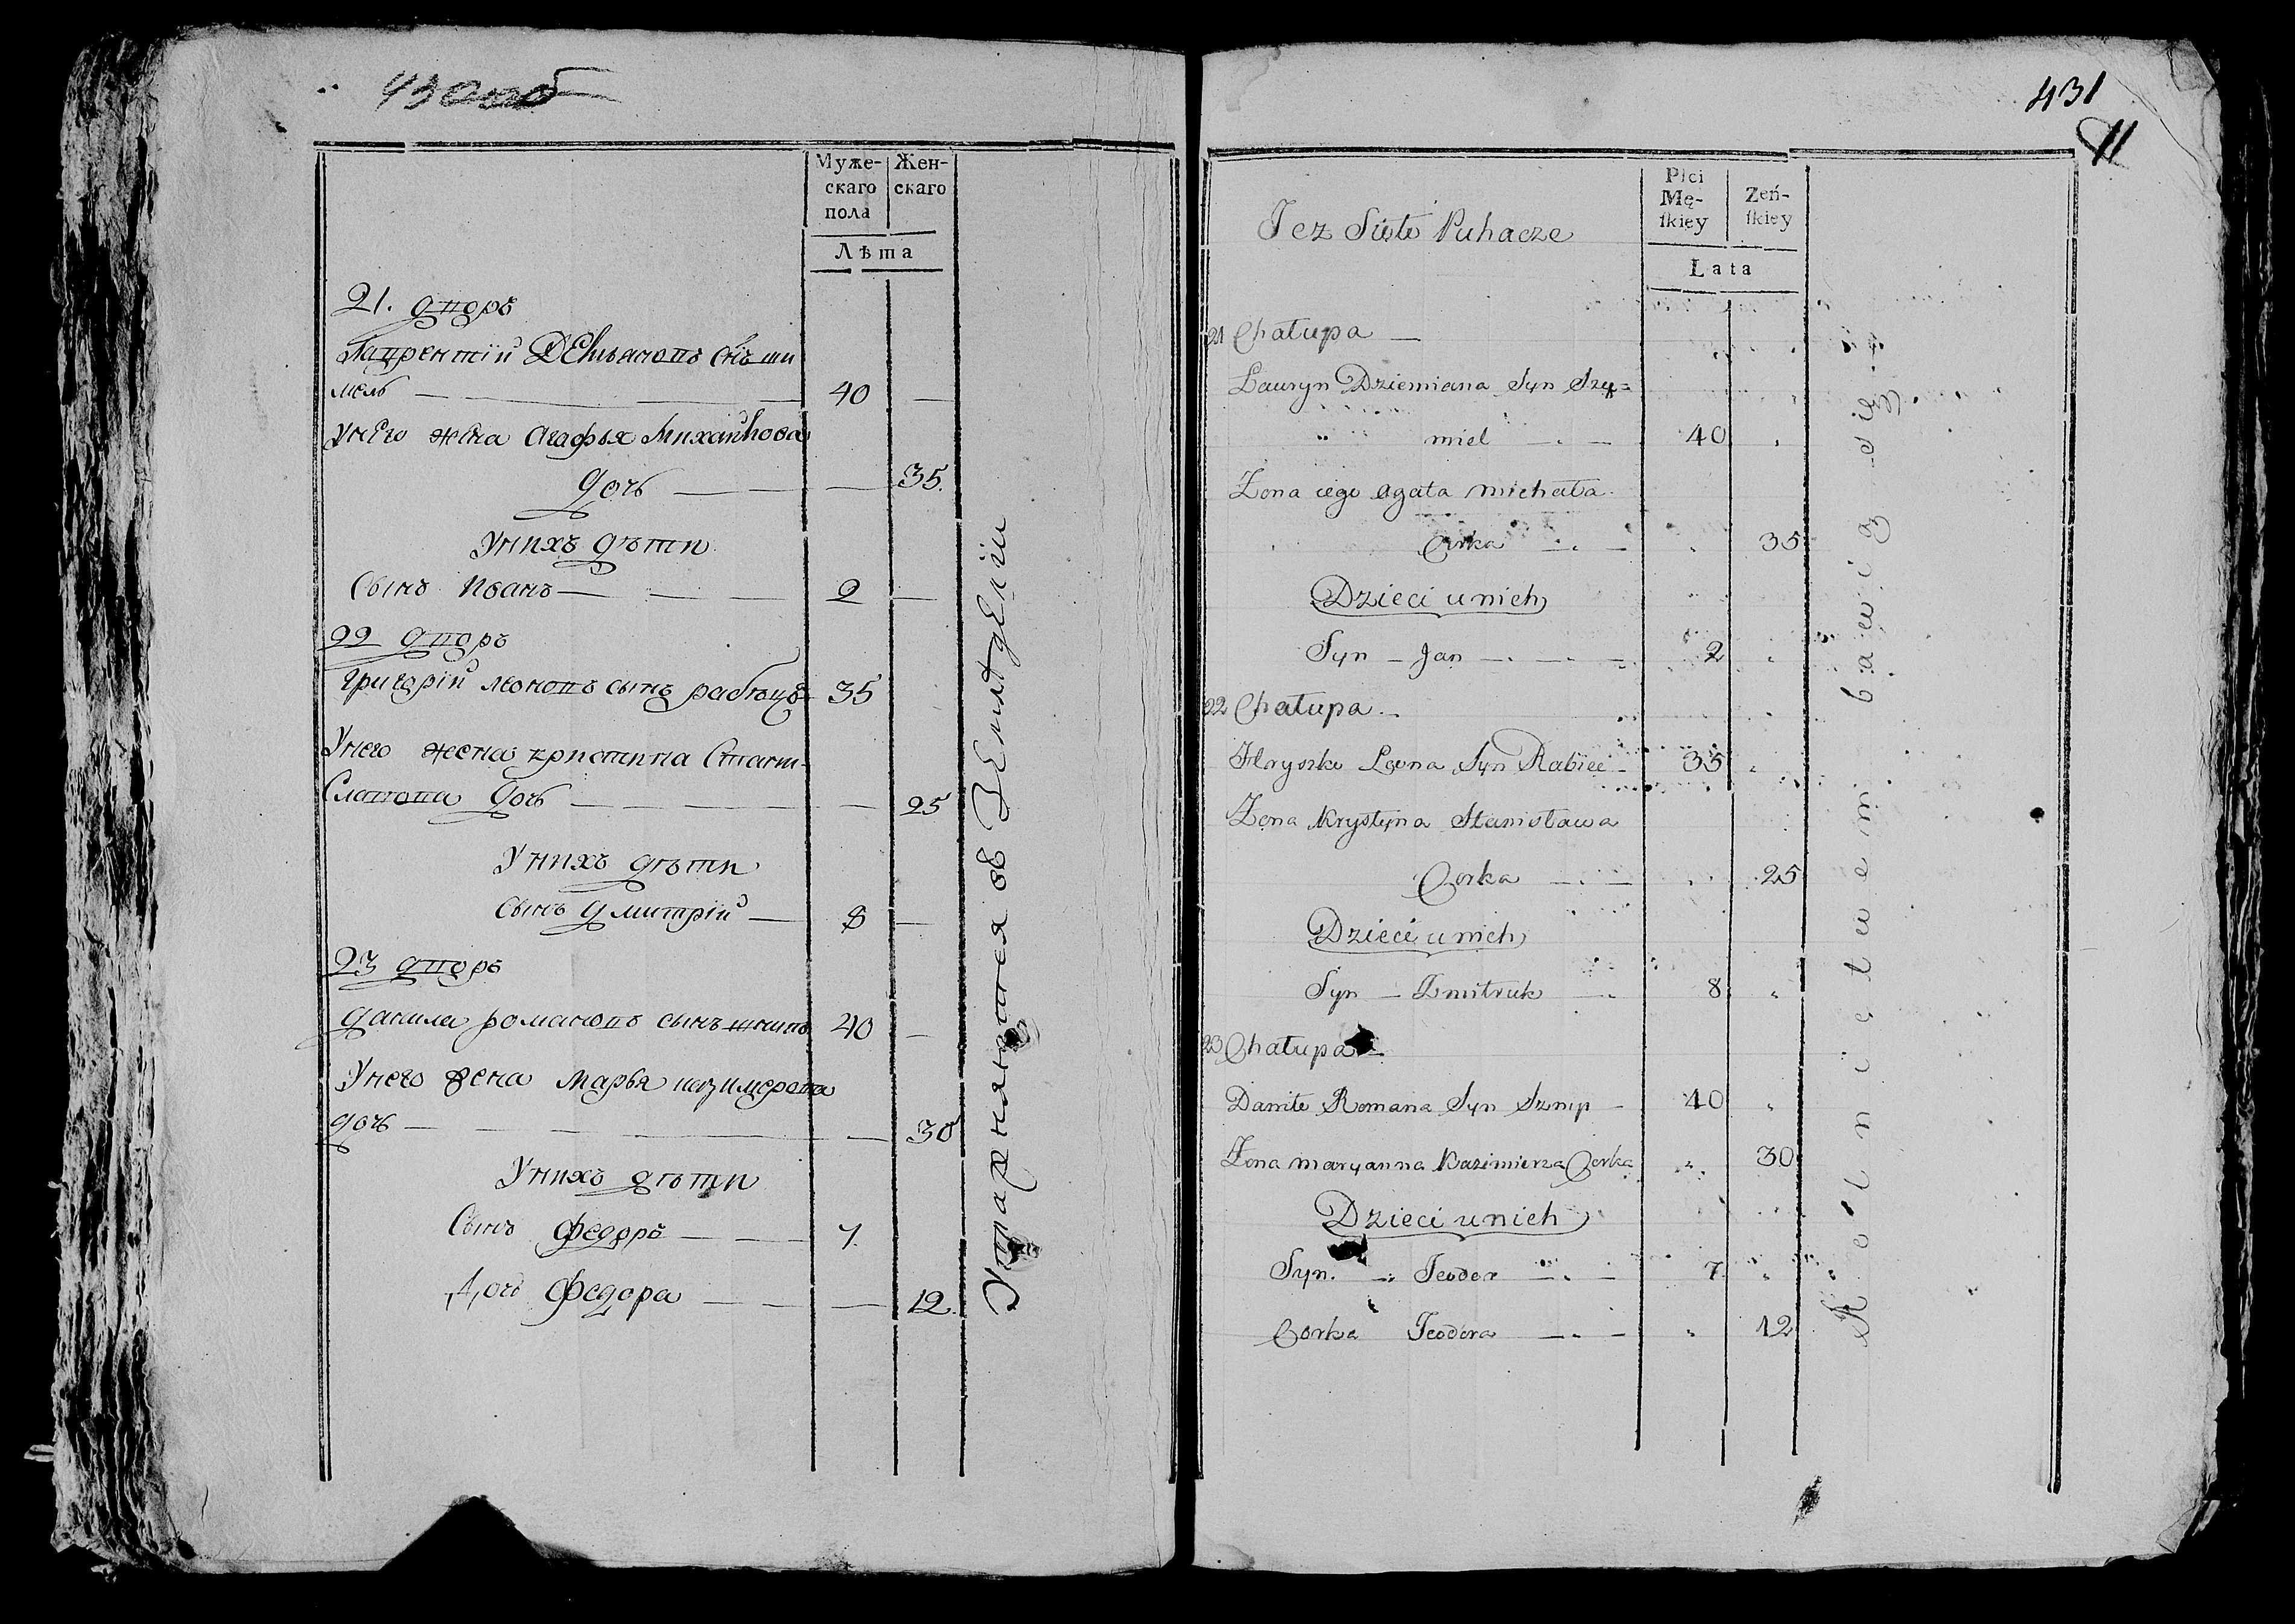 430 об
Муже-
скаго
пола
Жен-
скаго
Лѣта
21. дворъ
Лаврентій Демьяновъ снъ ши
мель — 40 —
Унего жена Агафья Михайлова
дочь — — 35.
Унихъ дѣти
Сынъ Иванъ — 2 —
22 дворъ
Григорій леоновъ сынъ рабѣцъ 35
Унего жена кристина Стани-
Славова дочь — — 25
Унихъ дѣти
Сынъ дмитрій — 8 —
23 дворъ
данила романовъ сынъ шнипъ 40 —
Унего жена Марья казимерова
дочь — — 30
Унихъ дѣти
Сынъ федоръ — 7.
Дочь федора — — 12.
Упражняются въ Земледѣліи
431
11
Płci
Mę-
ſkiey
Zeń-
ſkiey
Lata
Tez Sioło Puhacze
21 Chałupa —
Lauryn Dziemiana Syn Szy=
miel — 40
Zona iego Agata Michała
Corka — 35
Dzieci u nich
Syn — Jan — 2
22 Chałupa —
Hryszko Leona Syn Rabiec — 35
Zona Krystyna Stanisława
Corka — 25
Dzieci u nich
Syn — Dmitruk — 8
23 Chałupa —
Daniło Romana Syn Sznip — 40
Zona Maryanna Kazimierza Corka 30
Dzieci u nich
Syn. — Teodor — 7
Corka Teodora — 12
Rolnictwem bawią się